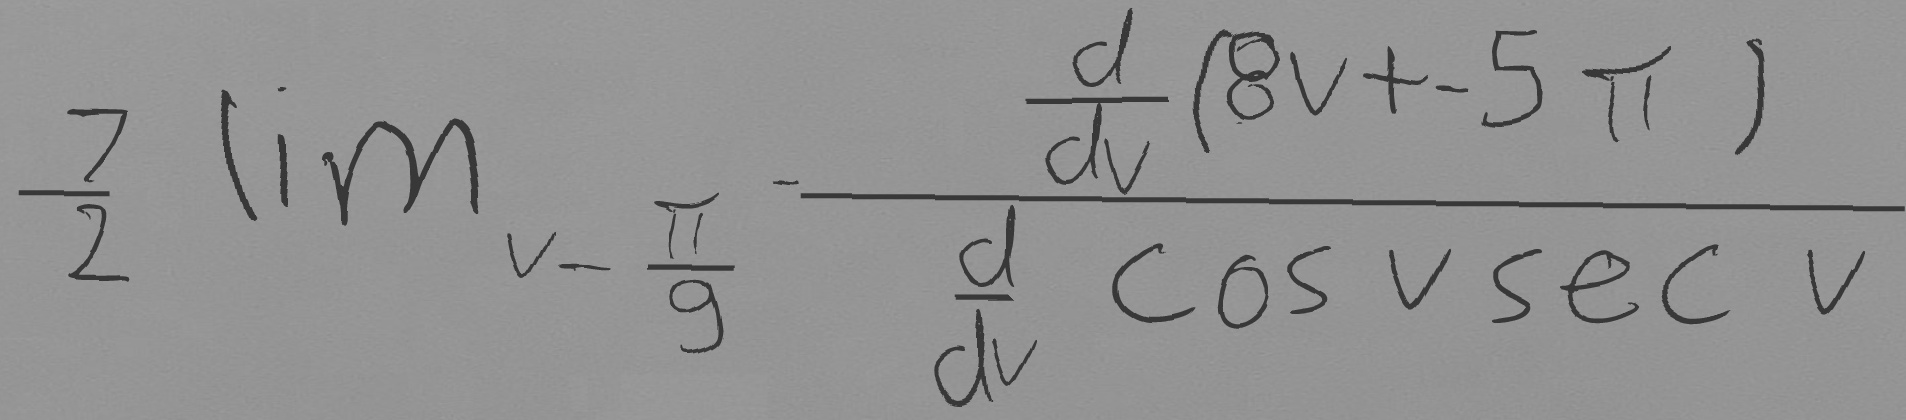 \frac{7}{2} \lim_{v - \frac{\pi}{9}} - \frac{\frac{d}{dv} (8v + - 5 \pi)}{\frac{d}{dv} \cos v \sec v}